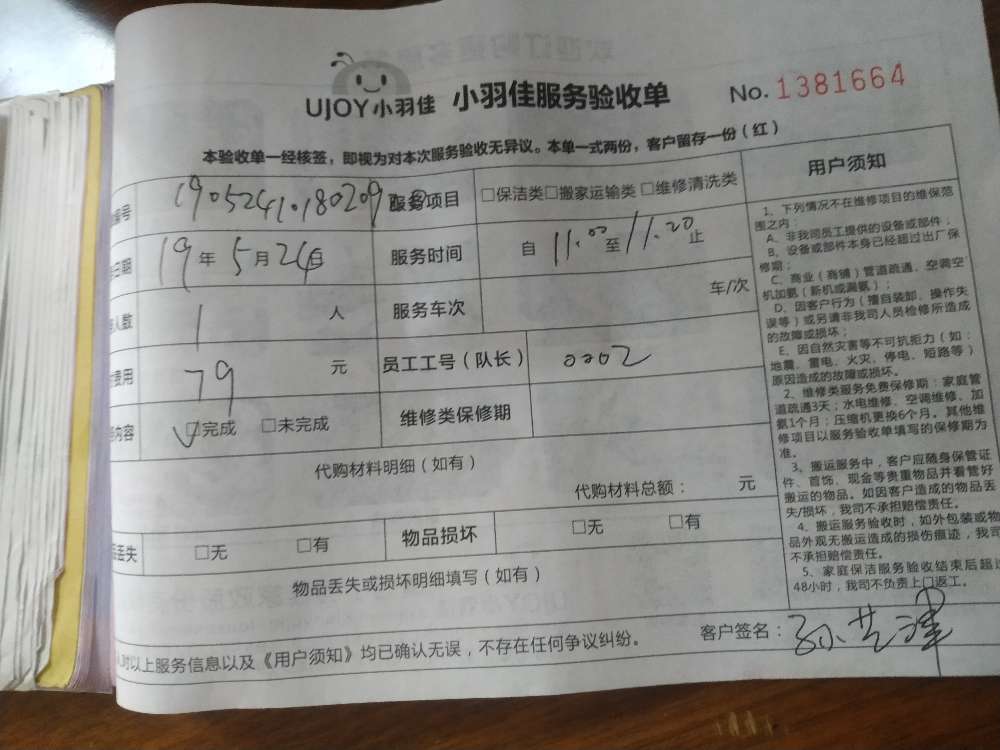 UJOY小羽佳 小羽佳服务验收单 No. 1381664
本验收单一经核签，即视为对本次服务验收无异议。本单一式两份，客户留存一份（红）
编号 19052410180209 服务项目 □保洁类□搬家运输类 □维修清洗类
日期 19年5月24日 服务时间 自 11.00 至 11.20 止
人数 1 人 服务车次 车/次
费用 79 元 员工工号（队长） 0002
内容 ☑完成 □未完成 维修类保修期
代购材料明细（如有）
代购材料总额： 元
丢失 □无 □有 物品损坏 □无 □有
物品丢失或损坏明细填写（如有）
对以上服务信息以及《用户须知》均已确认无误，不存在任何争议纠纷。 客户签名：
用户须知
1、下列情况不在维修项目的维保范
围之内：
A、非我司员工提供的设备或部件；
B、设备或部件本身已经超过出厂保
修期；
C、商业（商铺）管道疏通、空调空
机加氨（新机或漏氨）；
D、因客户行为（擅自装卸、操作失
误等）或另请非我司人员检修所造成
的故障或损坏；
E、因自然灾害等不可抗拒力（如：
地震、雷电、火灾、停电、短路等）
原因造成的故障或损坏。
2、维修类服务免费保修期：家庭管
道疏通3天；水电维修、空调维修、加
氨1个月；压缩机更换6个月。其他维
修项目以服务验收单填写的保修期为
准。
3、搬运服务中，客户应随身保管证
件、首饰、现金等贵重物品并看管好
搬运的物品。如因客户造成的物品丢
失/损坏，我司不承担赔偿责任。
4、搬运服务验收时，如外包装或物
品外观无搬运造成的损伤痕迹，我司
不承担赔偿责任。
5、家庭保洁服务验收结束后超过
48小时，我司不负责上门返工。